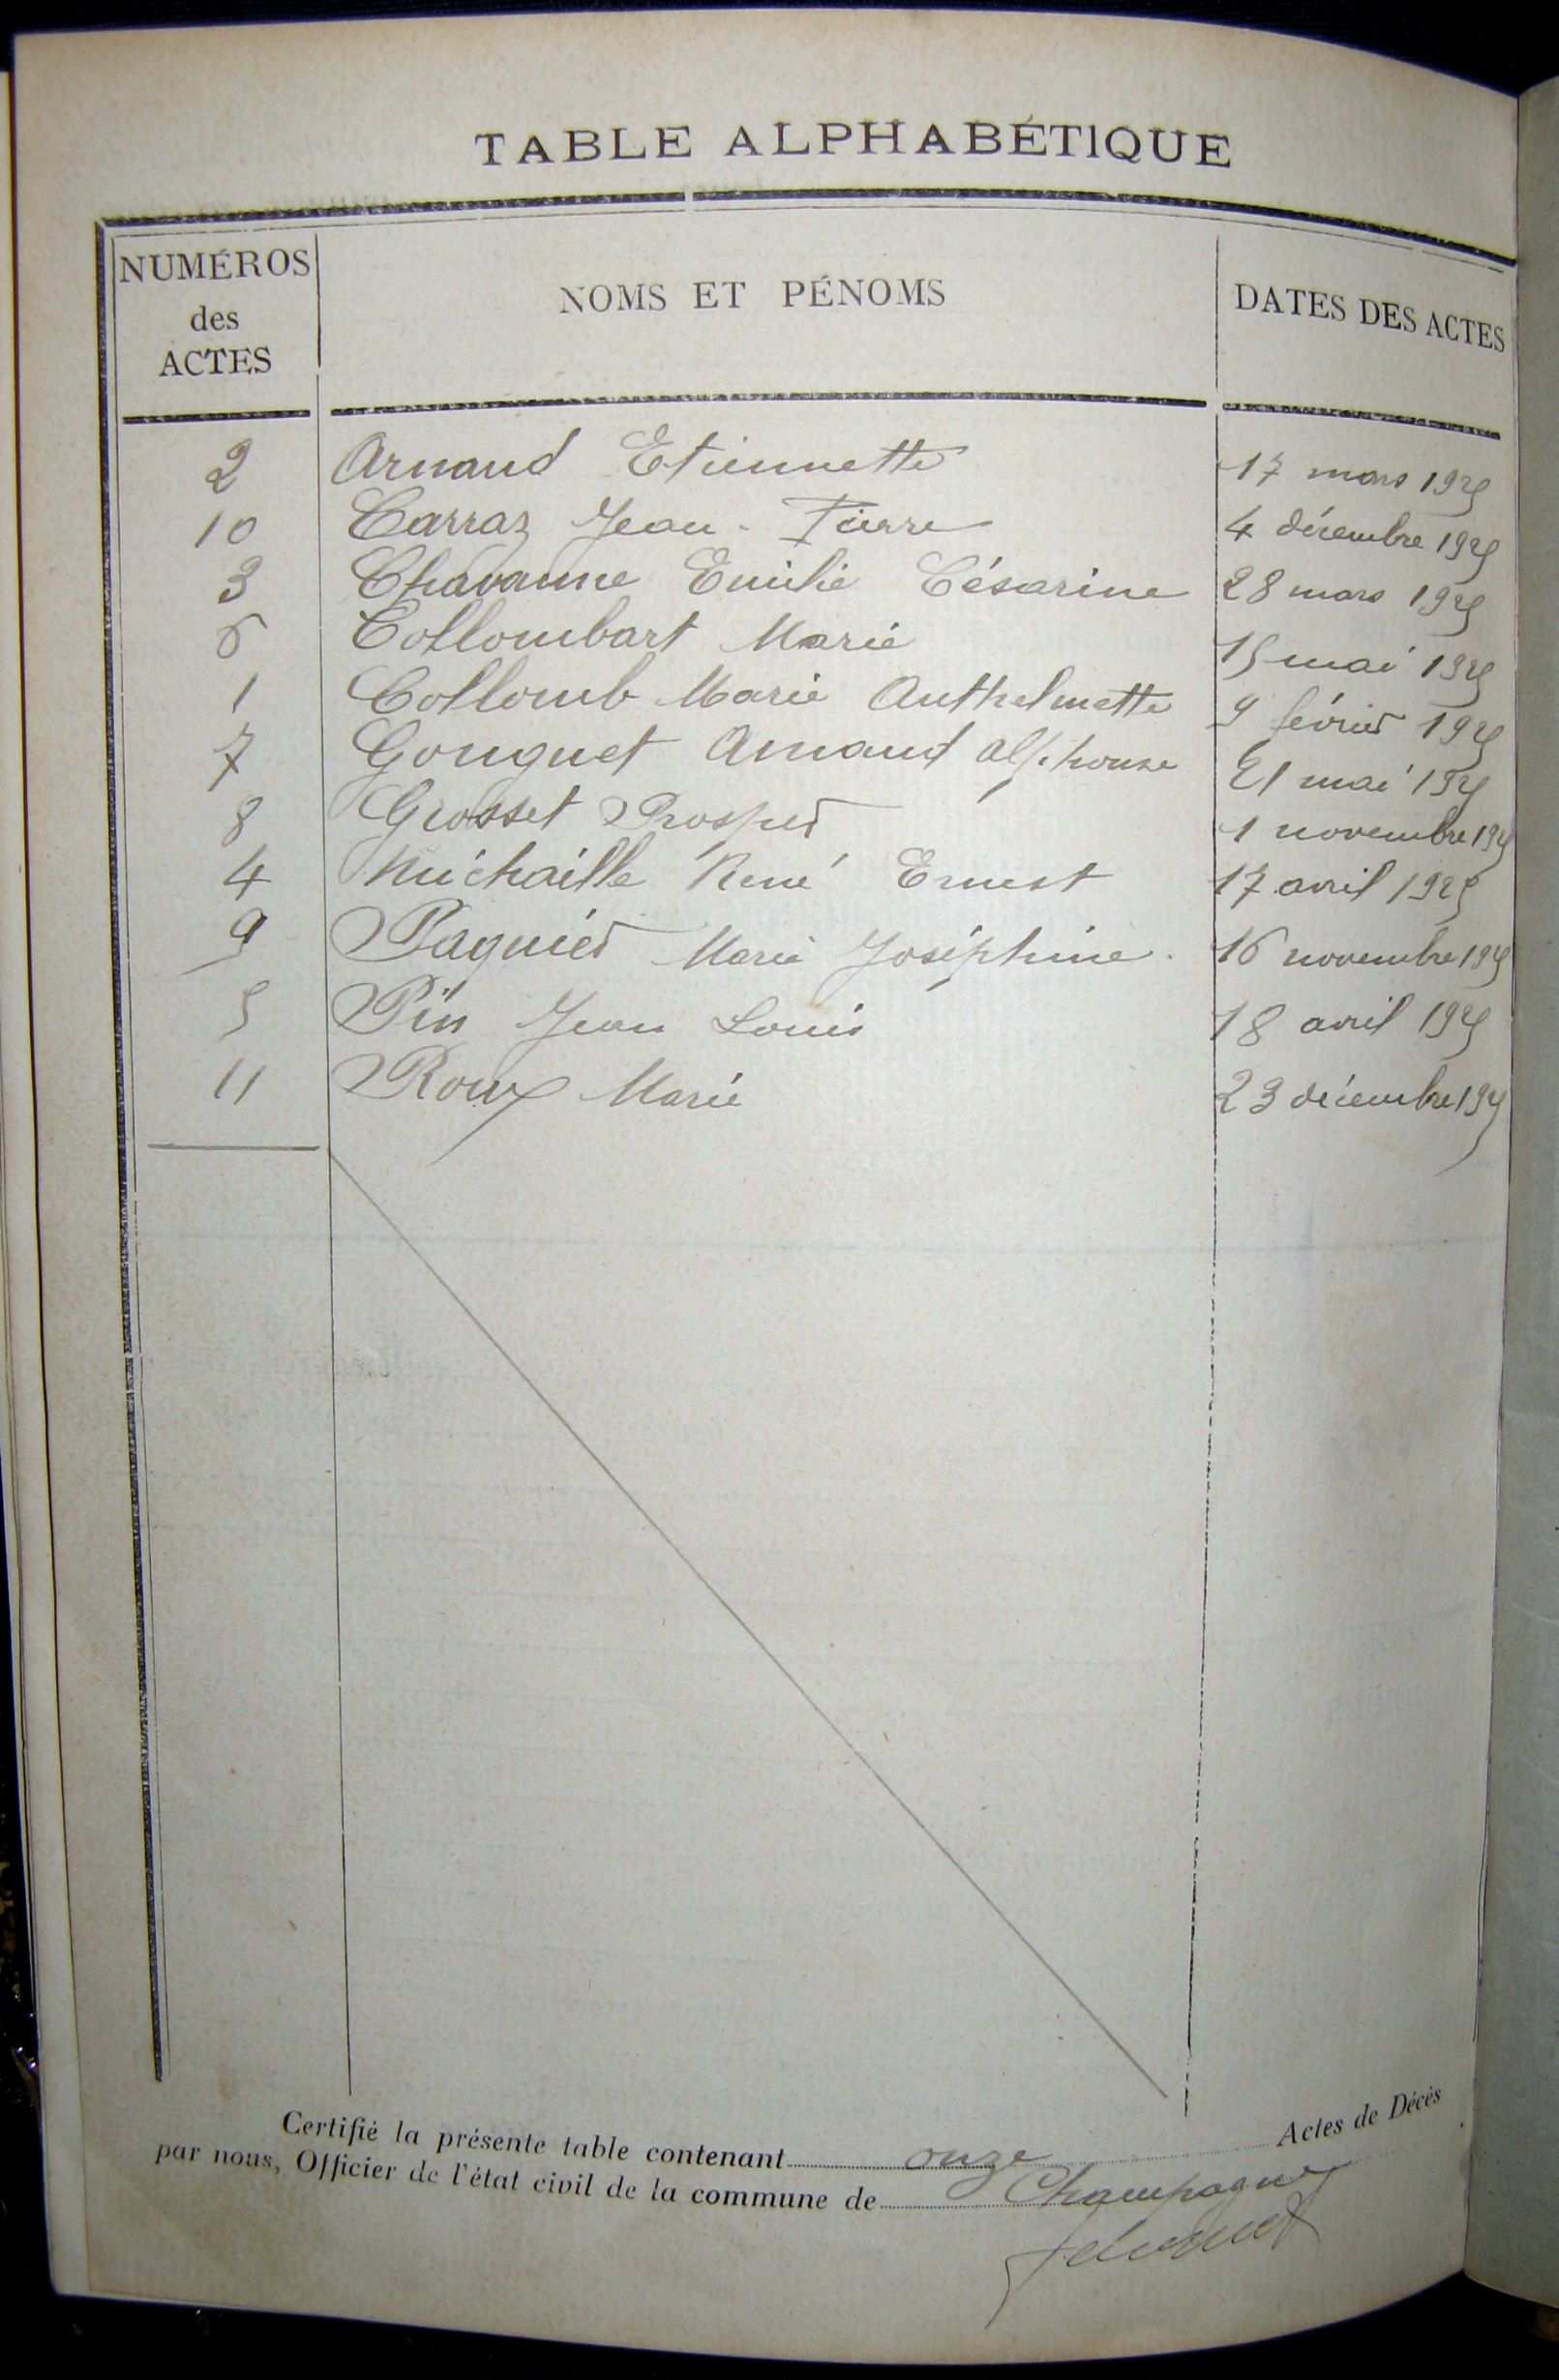 TABLE ALPHABÉTIQUE
NUMÉROS
des
ACTES
NOMS ET PÉNOMS
DATES DES ACTES
2 Arnaud Etiennette 17 mars 1925
10 Carraz Jean-Pierre 4 décembre 1925
3 Chavanne Emilie Césarine 28 mars 1925
6 Collombart Marie 15 mai 1925
1 Collomb Marie Anthelmette 9 février 1925
7 Gonguet Amand Alphonse 21 mai 1925
8 Grosset Prosper 1 novembre 1925
4 Michaille René Ernest 17 avril 1925
9 Paquier Marie Joséphine. 16 novembre 1925
5 Pin Jean Louis 18 avril 1925
11 Roux Marie 23 décembre 1925
Certifié la présente table contenant onze Actes de Décès
par nous, Officier de l'état civil de la commune de Champagne